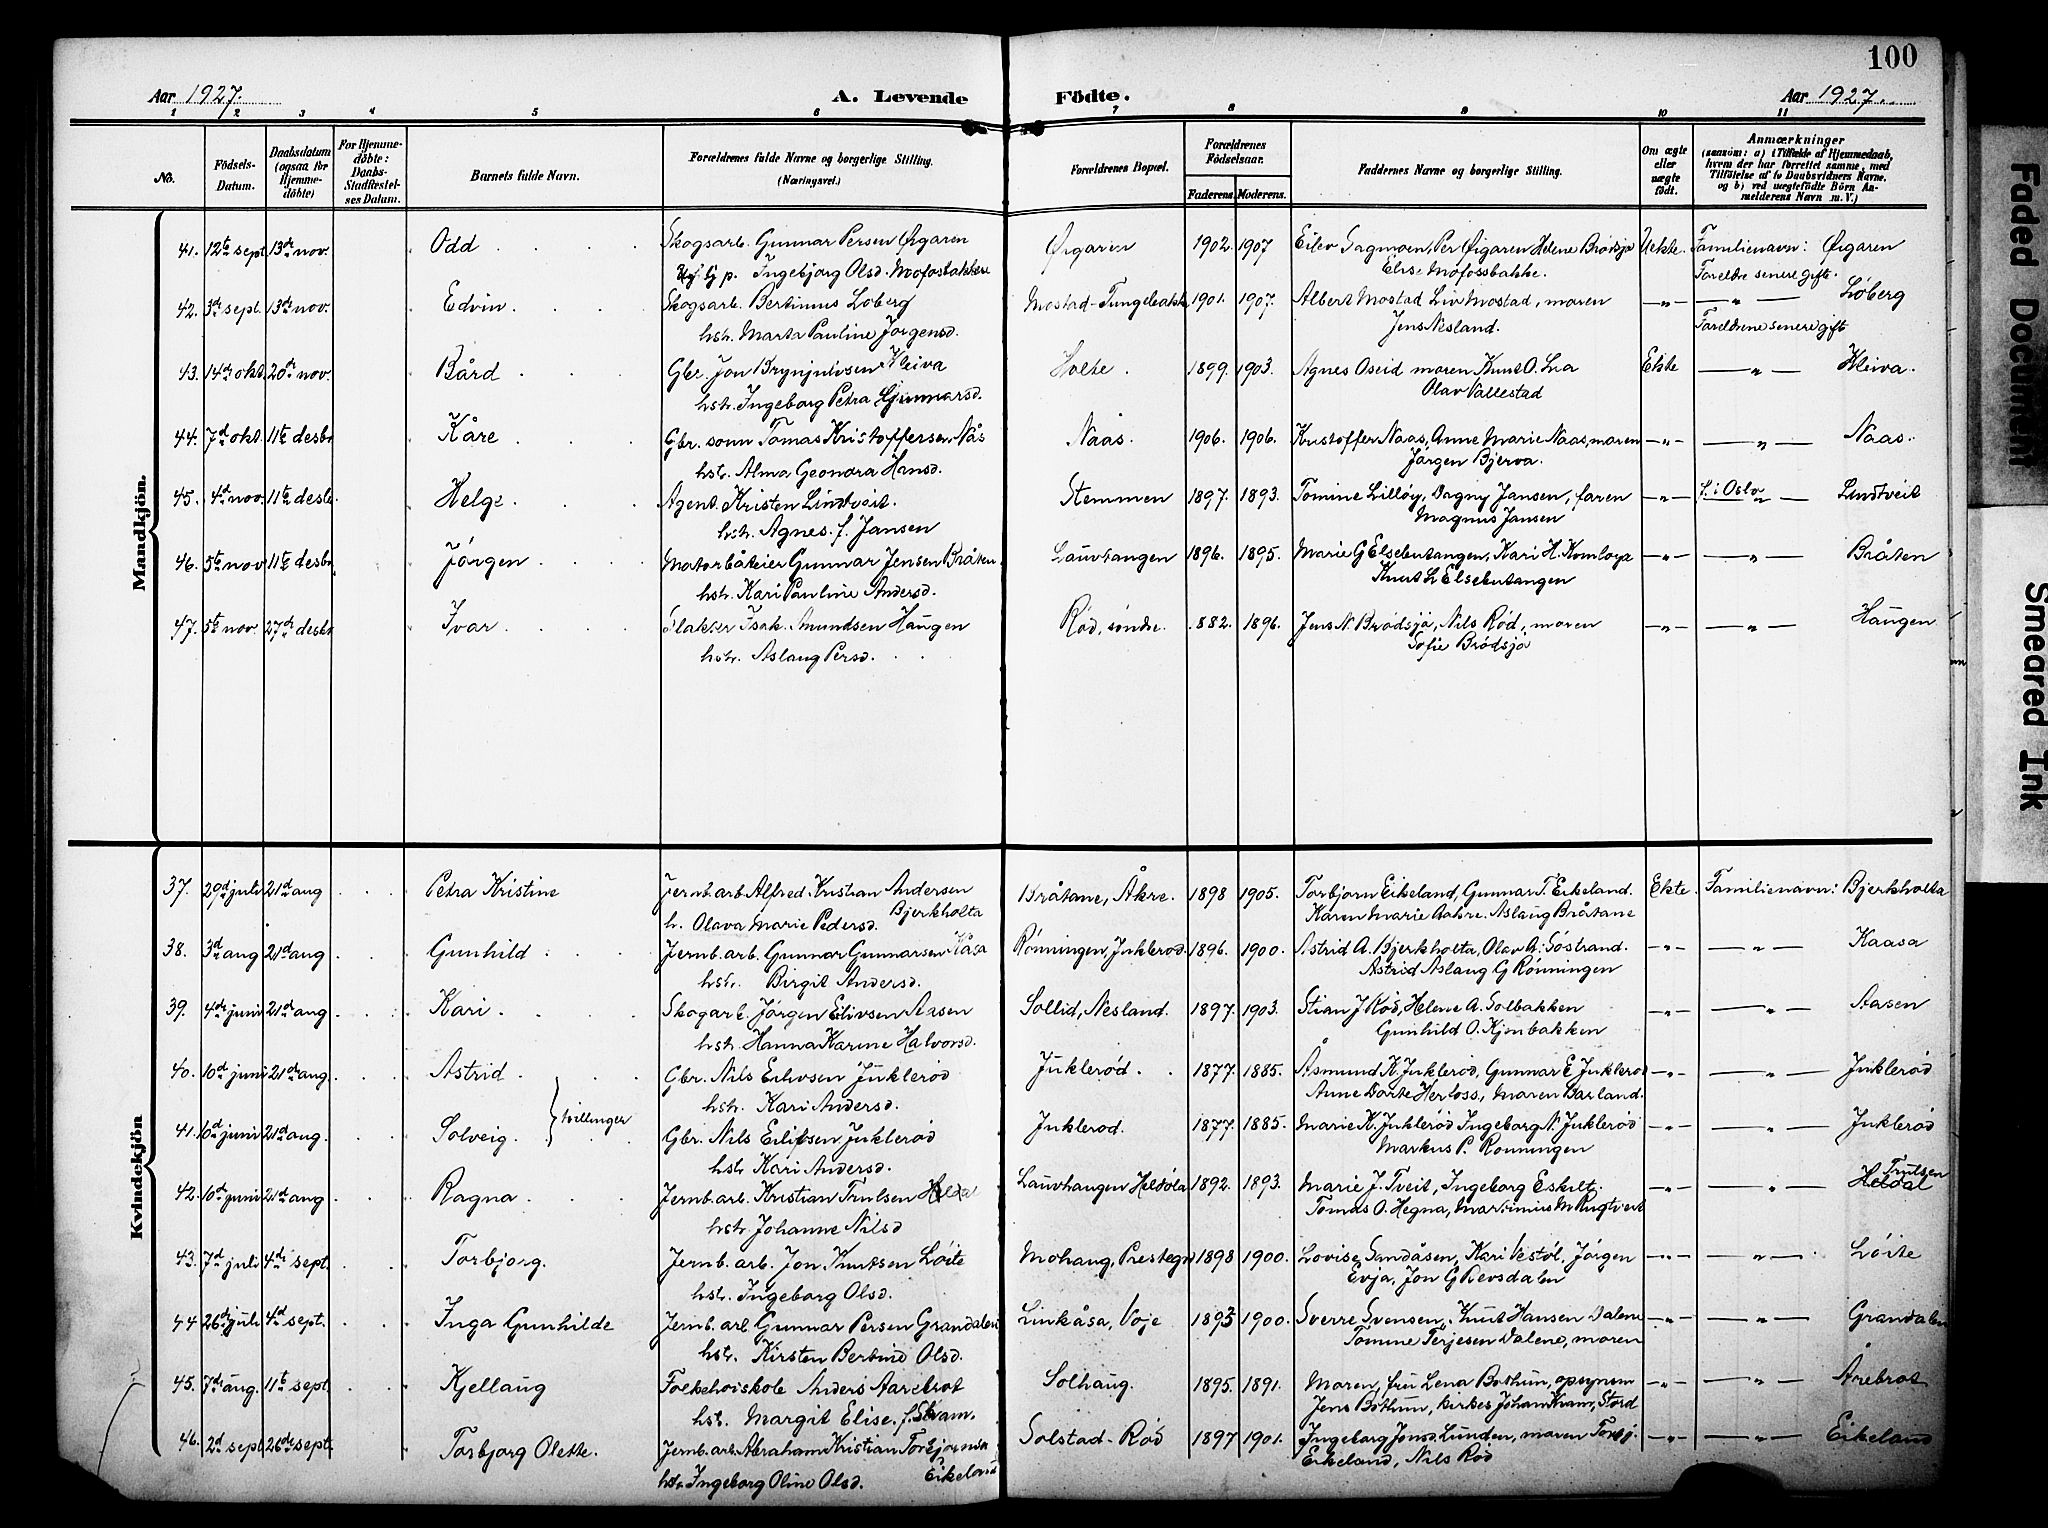 100
Aar 1927.
A. Levende
Födte.
Aar 1927.
1 2 3 4 5 6 7 8 9 10 11
No.
Födsels-
Datum.
Daabsdatum
(ogsaa for
Hjemme-
döbte)
For Hjemme-
döbte:
Daabs-
Stadfæstel-
ses Datum.
Barnets fulde Navn.
Forældrenes fulde Navne og borgerlige Stilling.
(Næringsvei.)
Forældrenes Bopæl.
Forældrenes
Födselsaar.
Faderens. Moderens.
Faddernes Navne og borgerlige Stilling.
Om ægte
eller
uægte
født.
Anmærkninger
(saasom: a) i Tilfælde af Hjemmedaab,
hvem der har forrettet samme, med
Tilföielse af to Daabsvidners Navne,
og b) ved uægtefödte Börn An-
melderens Navn m. V.)
Mandkjön.
41. 12te sept 13de nov. Odd Skogsarb. Gunnar Persen Øigaren Øigaren 1902. 1907 Eilev Sagmoen, Per Øigaren Helene Brødsjø Uekte. Familienavn: Øigaren
p. Ingebjorg Olsd. Mofosbakken Elise Mofossbakke. Foreldre senere gift.
42. 3de sept. 13de nov. Edvin. Skogsarb. Bertinius Løberg Mostad-Tangebakk 1901. 1907. Albert Mostad Liv Mostad, moren -"- -"- Løberg
hstr. Marta Pauline Jørgensd. Jens Nesland. Foreldrene senere gift
43. 14de okt. 20de nov. Bård Gbr. Jon Brynjulvsen Kleiva Holte. 1899. 1903. Agnes Oseid moren Knut O. Lia Ekte -"- Kleiva.
hstr. Ingeborg Petra Gunnarsd. Olav Vallestad
44. 7d okt. 11te desbr Kåre Gbr. sønn Tomas Kristoffersen Nås Naas. 1906. 1906. Kristoffer Naas, Anne Marie Naas, moren -"- -"- Naas.
hst. Alma Geonora Hansd. Jørgen Bjerva.
45. 4d nov. 11te desbr. Helge Agent Kristen Lindtveit. Stemmen 1897. 1893. Tomine Lilløy, Dagny Jansen, faren -"- f. i Oslo -"- Lindtveit
hstr. Agnes f. Jansen Magnus Jansen
46. 5te nov 11te desbr. Jørgen Motorbåteier Gunnar Jensen Bråten Lauvtangen 1896. 1895. Marie G Elsebutangen, Kari H. Komloya -"- -"- Bråten
hstr. Kari Pauline Andersd. Knut L Elsebutangen
47. 5te nov. 27de desbr Ivar Slakter Isak Amundsen Haugen Rød, søndre. 882. 1896. Jens N Brødsjø, Nils Rød, moren -"- -"- Haugen
hstr. Aslaug Persd. Sofie Brødsjø
Kvindekjön
37. 29d juli 21d aug Petra Kristine Jernb. arb Alfred Kristian Andersen Bråtane, Åkre. 1898 1905. Torbjorn Eikeland, Gunnar T. Eikeland. Ekte. Familienavn: Bjerkholta
h. Olava Marie Pedersd. Bjerkholta Karen Marie Aakre. Aslaug Bråtane
38. 3d aug 21d aug Gunhild Jernb. arb. Gunnar Gunnarsen Kåsa Rønningen, Juklerod. 1896. 1900. Astrid A. Bjerkholta, Olav A. Søstrand. -"- -"- Kaasa
hstr. Birgit Andersd. Astrid Aslaug G Rønningen
39. 4de juni 21d aug Kari. Skogarb. Jørgen Eilivsen Aasen Sollid, Nesland. 1897. 1903. Stian J Rød, Helene A. Solbakken -"- -"- Aasen
hstr. Hanna Karine Halvorsd. Gunhild O. Kjenbakken
40. 10d juni 21de aug. Astrid. Gbr. Nils Eilivsen Juklerød Juklerød. 1877. 1885. Åsmund K. Juklerød, Gunnar E Juklerød -"- -"- Juklerød
hstr. Kari Andersd. Anne Dorte Herloss, Maren Barland.
tvillinger
41. 10d juni 21d aug. Solveig. Gbr. Nils Eilifsen Juklerød Juklerod. 1877. 1885. Marie K. Juklerød Ingeborg N. Juklerød -"- -"- Juklerød
hstr Kari Andersd. Markus P. Ronningen
42. 10d juni 21d aug Ragna Jernb. arb. Kristian Trulsen Heldal Lauvhaugen Heldøla 1892. 1893. Marie J. Tveit, Ingeborg Eskilt. -"- -"- Trulsen Heldal
hstr Johanne Nilsd Tomas O. Hegna, Martinius M Rugtveit
43. 7d juli 4de sept. Torbjørg. Jernb. arb. Jon Knutsen Løite Mohaug, Prestegr 1898 1900. Lovise Sandåsen, Kari Vestøl, Jørgen -"- -"- Løite
hstr. Ingeborg Olsd. Evja, Jon G Revsdalen
44 26de juli 4d sept. Inga Gunhilde Jernb. arb Gunnar Persen Grandalen Linkåsa, Voje 1893 1900. Sverre Svensen, Knut Hansen Dalene -"- -"- Grandalen
hstr. Kirsten Bertine Olsd. Tomine Terjesen Dalene, moren
45. 7de aug. 11te sept. Kjellaug Folkehoiskole Anders Aarebrot Solhaug. 1895. 1891. Moren, fru Lena Bothun, opsynsm -"- -"- Årebrot
hstr. Margit Elise f. Kvam. Jens Bothun, Kirkes Johan Kvam, Stord
46. 2d sept 26de sept. Torbjorg Olette. Jernb. arb. Abraham Kristian Torbjornsen Solstad-Rød 1897 1901. Ingeborg Jonsd. Lunden, moren Torbj. -"- -"- Eikeland
hstr Ingeborg Oline Olsd. Eikeland Eikeland, Nils Rød
Faded Document
Smeared Ink